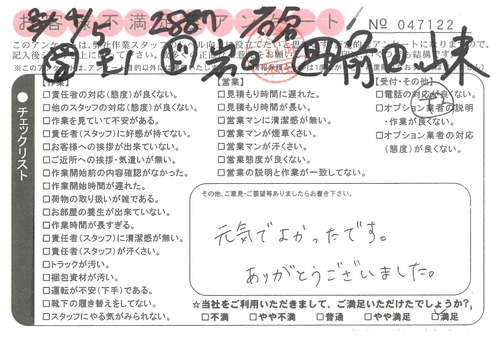 お客様不満足アンケート
No 047122
このアンケートは、弊社作業スタッフの
チェックリスト
【作業】
□責任者の対応(態度)が良くない。
□他のスタッフの対応(態度)が良くない。
□作業を見ていて不安がある。
□責任者(スタッフ)に好感が持てない。
□お客様への挨拶が出来ていない。
□ご近所への挨拶・気遣いが無い。
□作業開始前の内容確認がなかった。
□作業開始時間が遅れた。
□荷物の取り扱いが雑である。
□お部屋の養生が出来ていない。
□作業時間が長すぎる。
□責任者(スタッフ)に清潔感が無い。
□責任者(スタッフ)が汗くさい。
□トラックが汚い。
□梱包資材が汚い。
□運転が不安(下手)である。
□靴下の履き替えをしてない。
□スタッフにやる気がみられない。
【営業】
□見積もり時間に遅れた。
□見積もり時間が長い。
□営業マンに清潔感が無い。
□営業マンが煙草くさい。
□営業マンが汗くさい。
□営業態度が良くない。
□営業の説明と作業が一致してない。
【受付・その他】
□電話の対応が良くない。
□オプション業者の説明
・作業が良くない。
□オプション業者の対応
(態度)が良くない。
その他、ご意見・ご要望等ありましたらお書き下さい。
元気でよかったです。
ありがとうございました。
☆当社をご利用いただきまして、ご満足いただけたでしょうか?
□不満 □やや不満 □普通 □やや満足 □満足